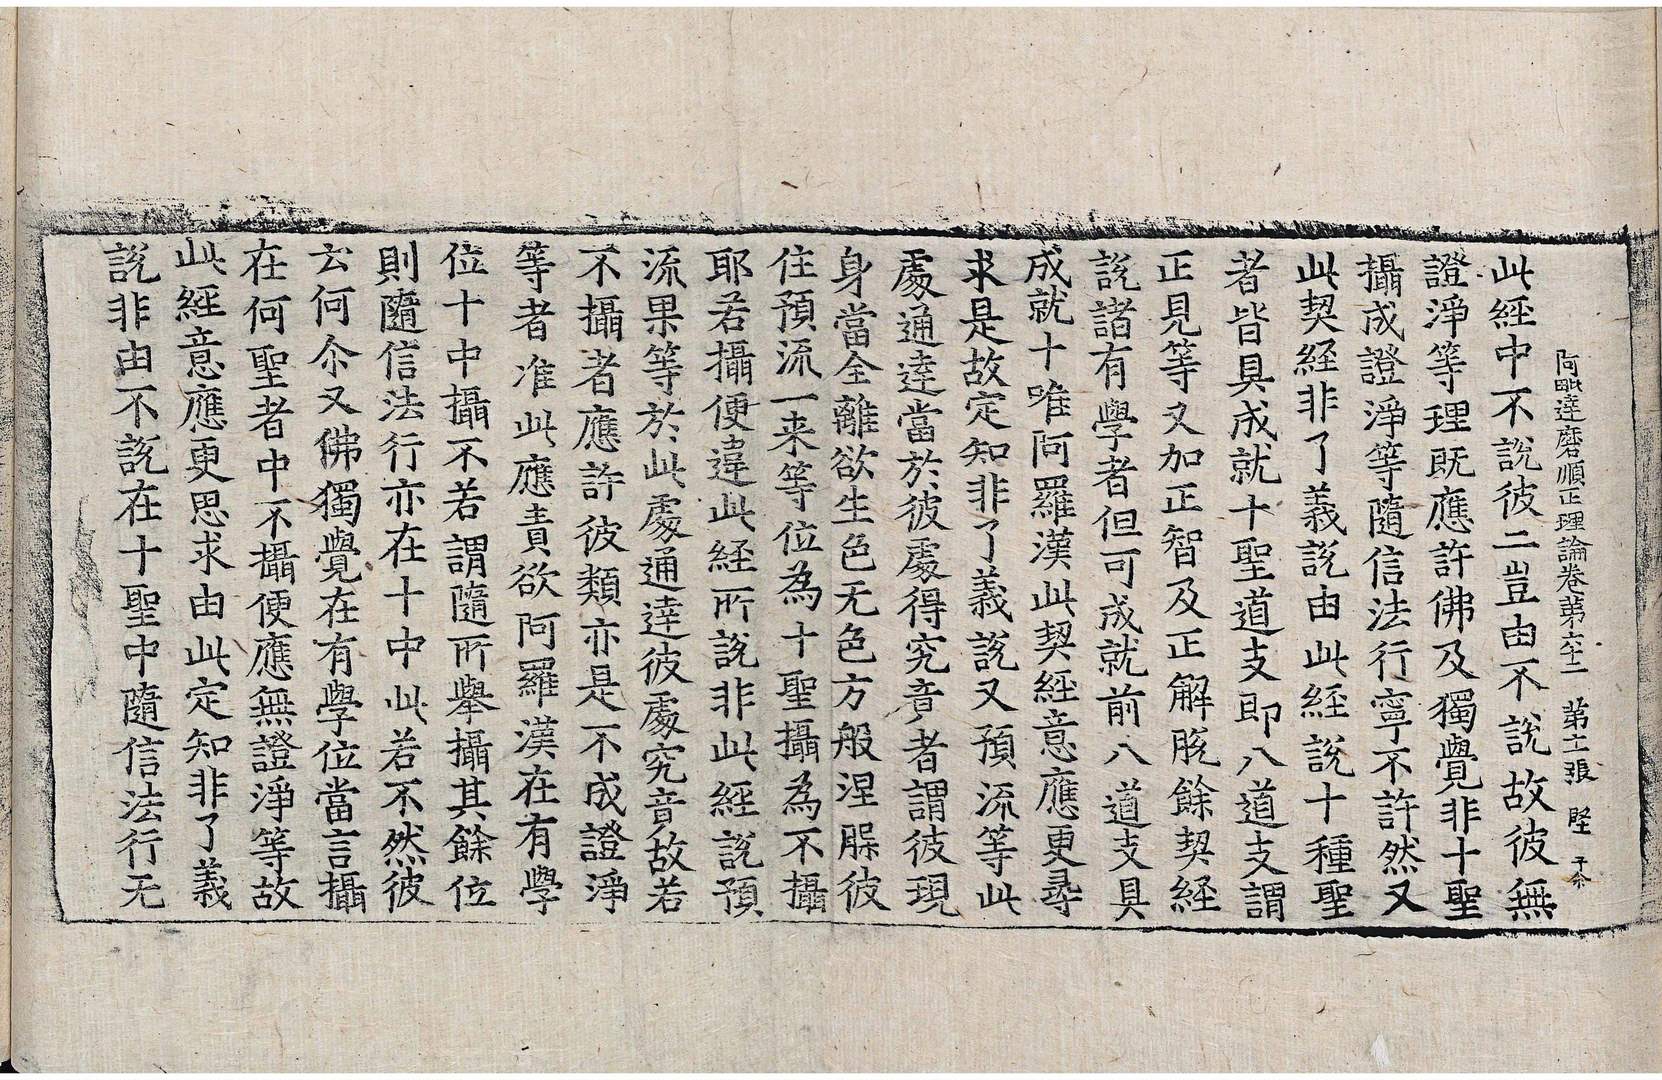 阿毗達磨順正理論卷第六十二 第十二張 堅
此経中不說彼二豈由不說故彼無
證淨等理既應許佛及獨覺非十聖
攝成證淨等隨信法行寧不許然又
此契経非了義說由此経說十種聖
者皆具成就十聖道支即八道支謂
正見等又加正智及正解脫餘契経
說諸有學者但可成就前八道支具
成就十唯阿羅漢此契経意應更尋
求是故定知非了義說又預流等此
處通達當於彼處得究竟者謂彼現
身當全離欲生色无色方般涅槃彼
住預流一来等位為十聖攝為不攝
耶若攝便違此経所說非此経說預
流果等於此處通達彼處究竟故若
不攝者應許彼類亦是不成證淨
等者准此應責欲阿羅漢在有學
位十中攝不若謂隨所舉攝其餘位
則隨信法行亦在十中此若不然彼
云何尒又佛獨覺在有學位當言攝
在何聖者中不攝便應無證淨等故
此経意應更思求由此定知非了義
說非由不說在十聖中隨信法行无